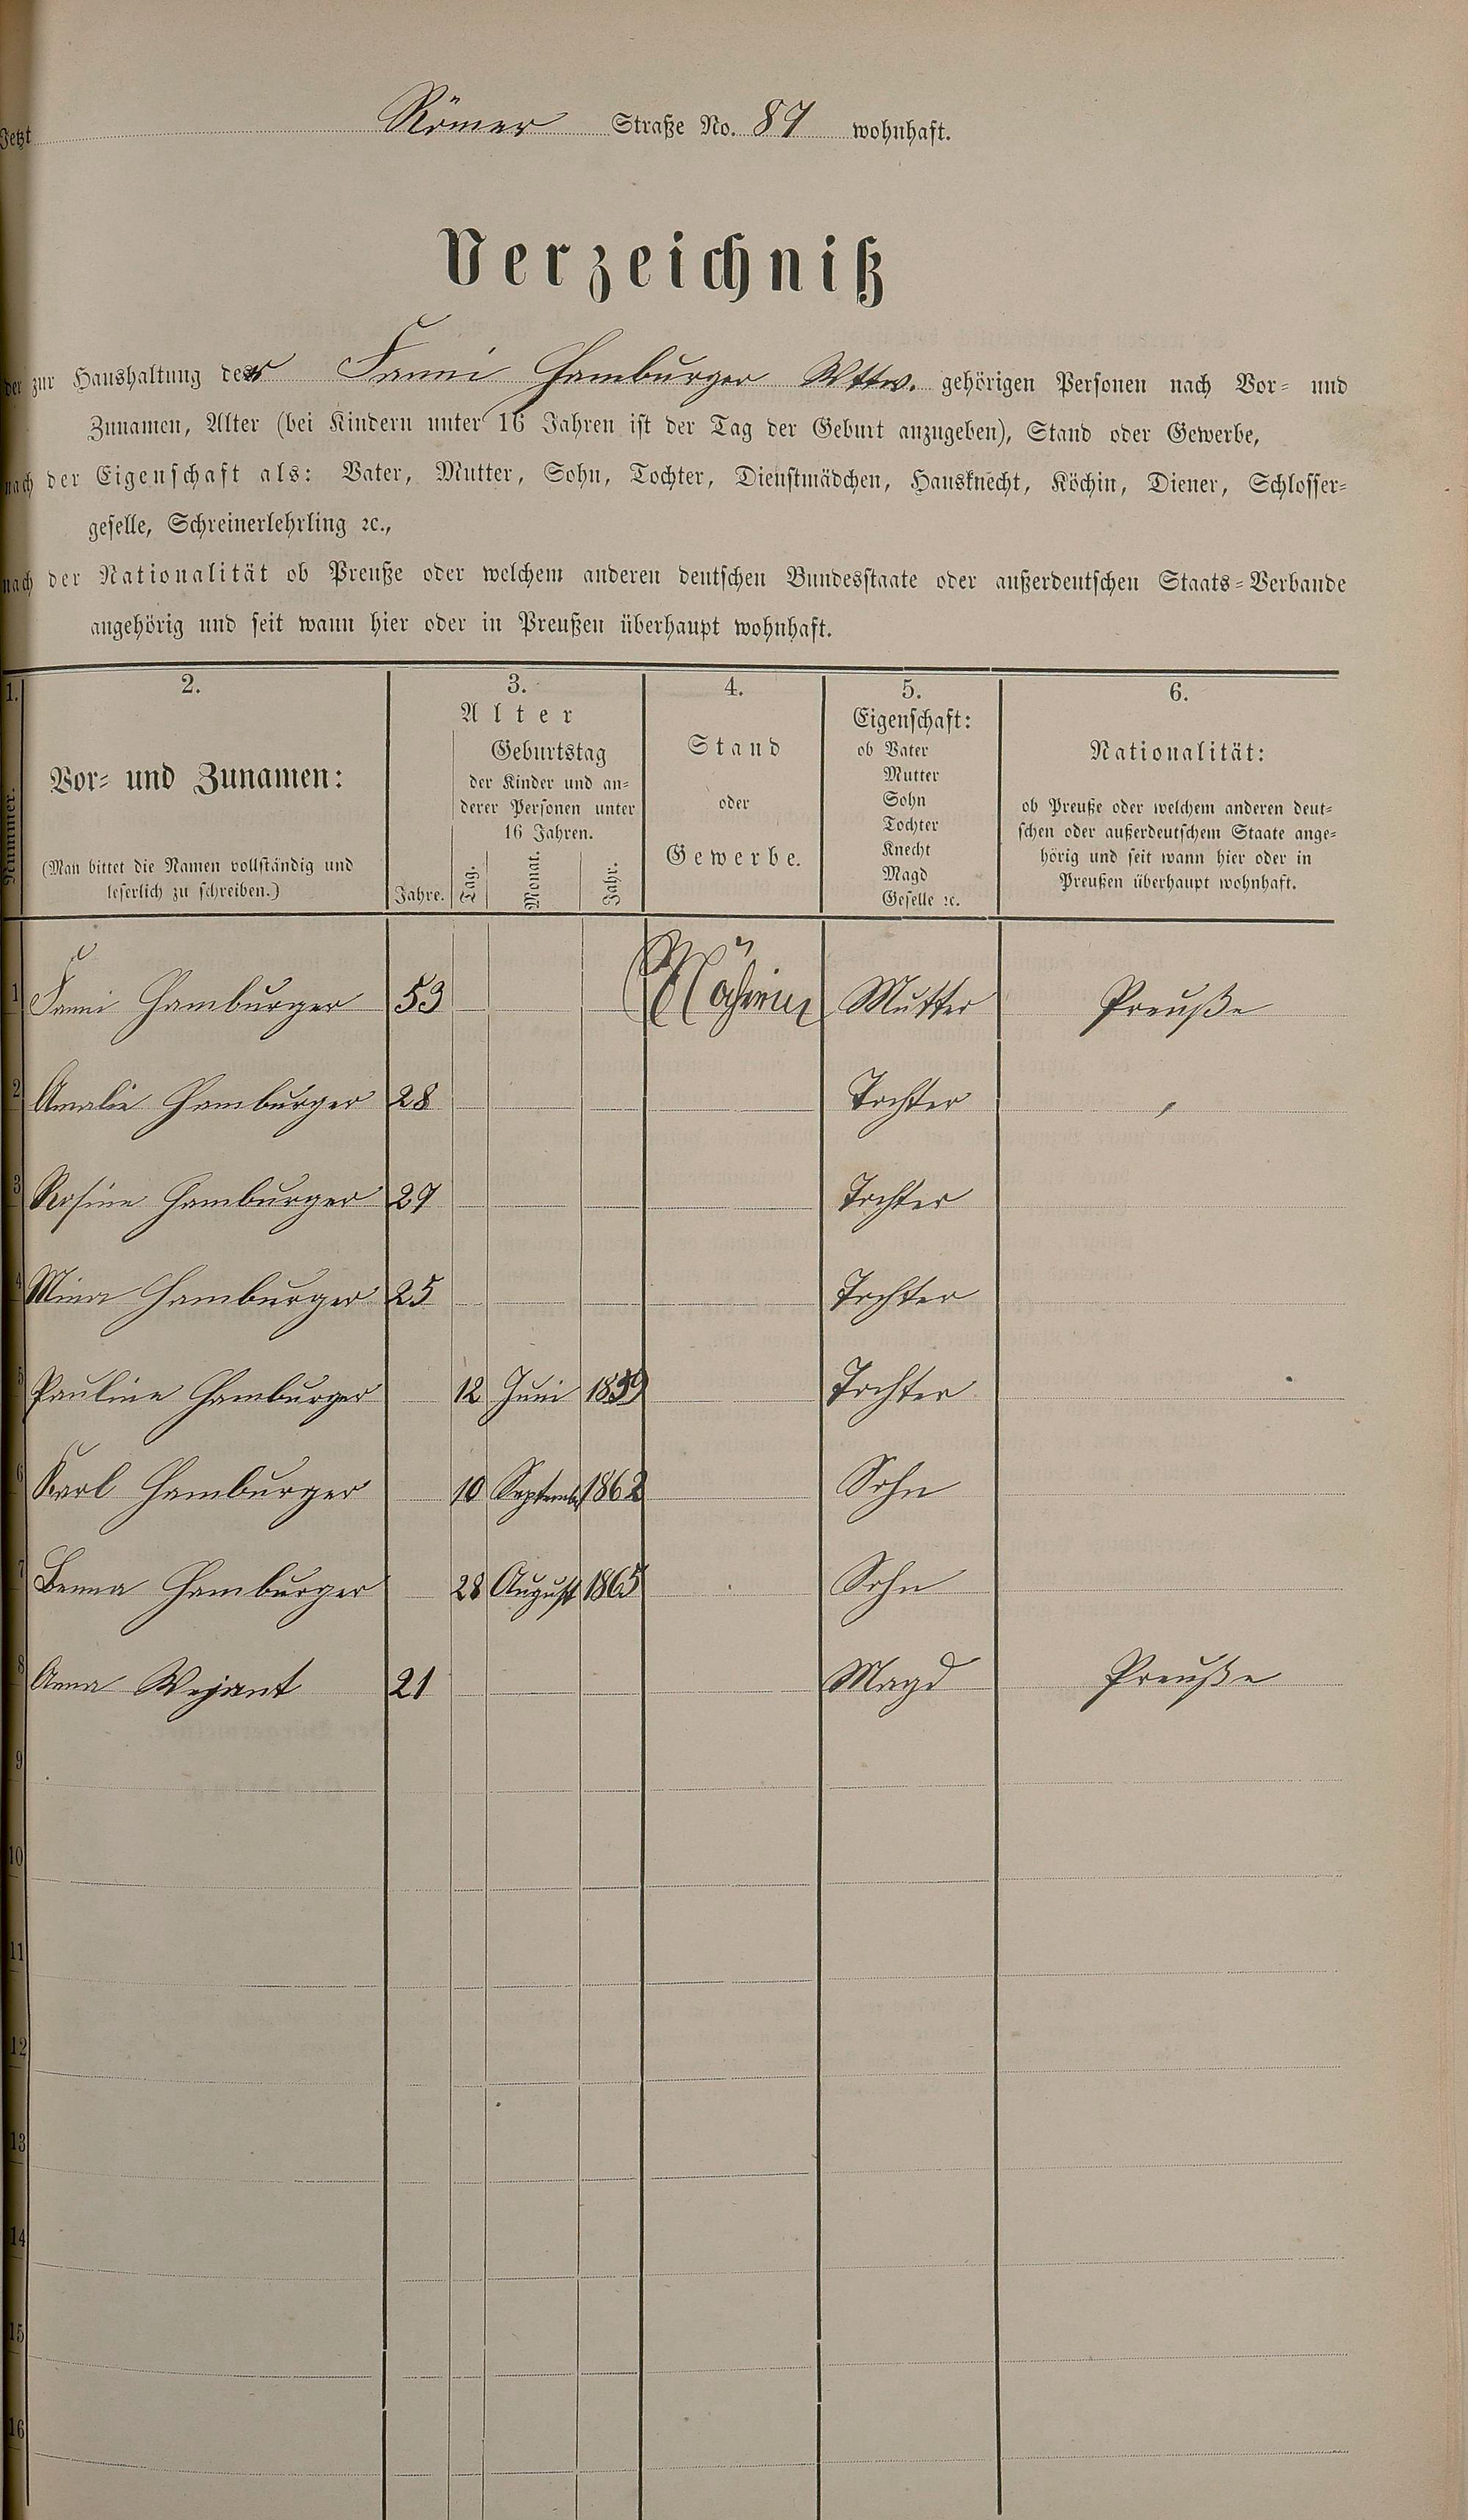 Jetzt Römer Straße No. 87 wohnhaft.
Verzeichniß
der zur Haushaltung der Fanni Hamburger Wttw. gehörigen Personen nach Vor- und
Zunamen, Alter (bei Kindern unter 16 Jahren ist der Tag der Geburt anzugeben), Stand oder Gewerbe,
nach der Eigenschaft als: Vater, Mutter, Sohn, Tochter, Dienstmädchen, Hausknecht, Köchin, Diener, Schlosser-
geselle, Schreinerlehrling ꝛc.,
nach der Nationalität ob Preuße oder welchem anderen deutschen Bundesstaate oder außerdeutschen Staats-Verbande
angehörig und seit wann hier oder in Preußen überhaupt wohnhaft.
1.
Nummer.
2.
Vor- und Zunamen:
(Man bittet die Namen vollständig und
leserlich zu schreiben.)
3.
Alter
Jahre.
Geburtstag
der Kinder und an-
derer Personen unter
16 Jahren.
Tag. Monat. Jahr.
4.
Stand
oder
Gewerbe.
5.
Eigenschaft:
ob Vater
Mutter
Sohn
Tochter
Knecht
Magd
Geselle ꝛc.
6.
Nationalität:
ob Preuße oder welchem anderen deut-
schen oder außerdeutschem Staate ange-
hörig und seit wann hier oder in
Preußen überhaupt wohnhaft.
1 Fanni Hamburger 53 Näherin Mutter Preuße
2 Amalie Hamburger 28 Tochter "
3 Rosine Hamburger 27 Tochter
4 Mina Hamburger 25 Tochter
5 Pauline Hamburger 12 Juni 1859 Tochter
6 Karl Hamburger 10 September 1862 Sohn
7 Benna Hamburger 28 August 1865 Sohn
8 Anna Wejant 21 Magd Preuße
9
10
11
12
13
14
15
16